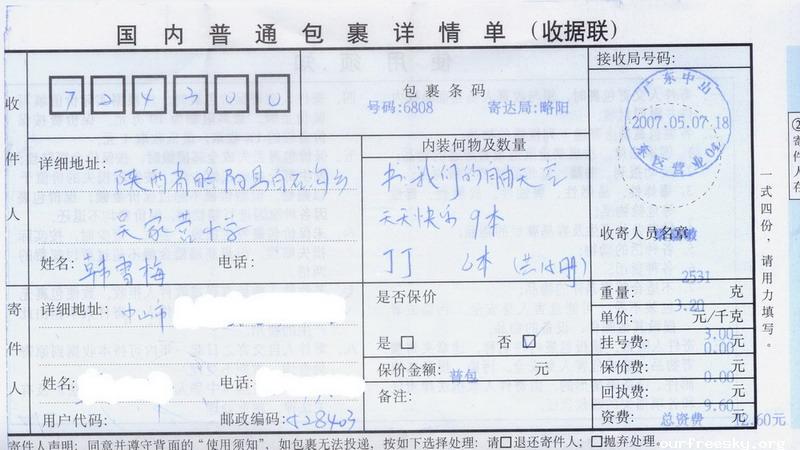 国内普通包裹详情单（收据联）
接收局号码：
724300
包裹条码
号码:6808 寄达局:略阳
广东中山
2007.05.07 18
东区营业
收件人
详细地址：
陕西省略阳县白石沟乡
吴家营小学
姓名：韩雪梅 电话：
内装何物及数量
书 我们的自由天空
天天快乐 9本
丁丁 6本
收寄人员名章
寄件人
详细地址：中山市
姓名： 电话：
用户代码： 邮政编码：528403
是否保价
是□ 否☑
保价金额： 元
普包
备注：
2531
重量： 克
3.20
单价： 元/千克
挂号费：3.00元
0.00
保价费： 元
0.00
回执费： 元
9.60
资费：总资费 12.60元
一式四份，请用力填写。
寄件人声明：同意并遵守背面的“使用须知”，如包裹无法投递，按如下选择处理：请□退还寄件人；□抛弃处理。
ourfreesky.org